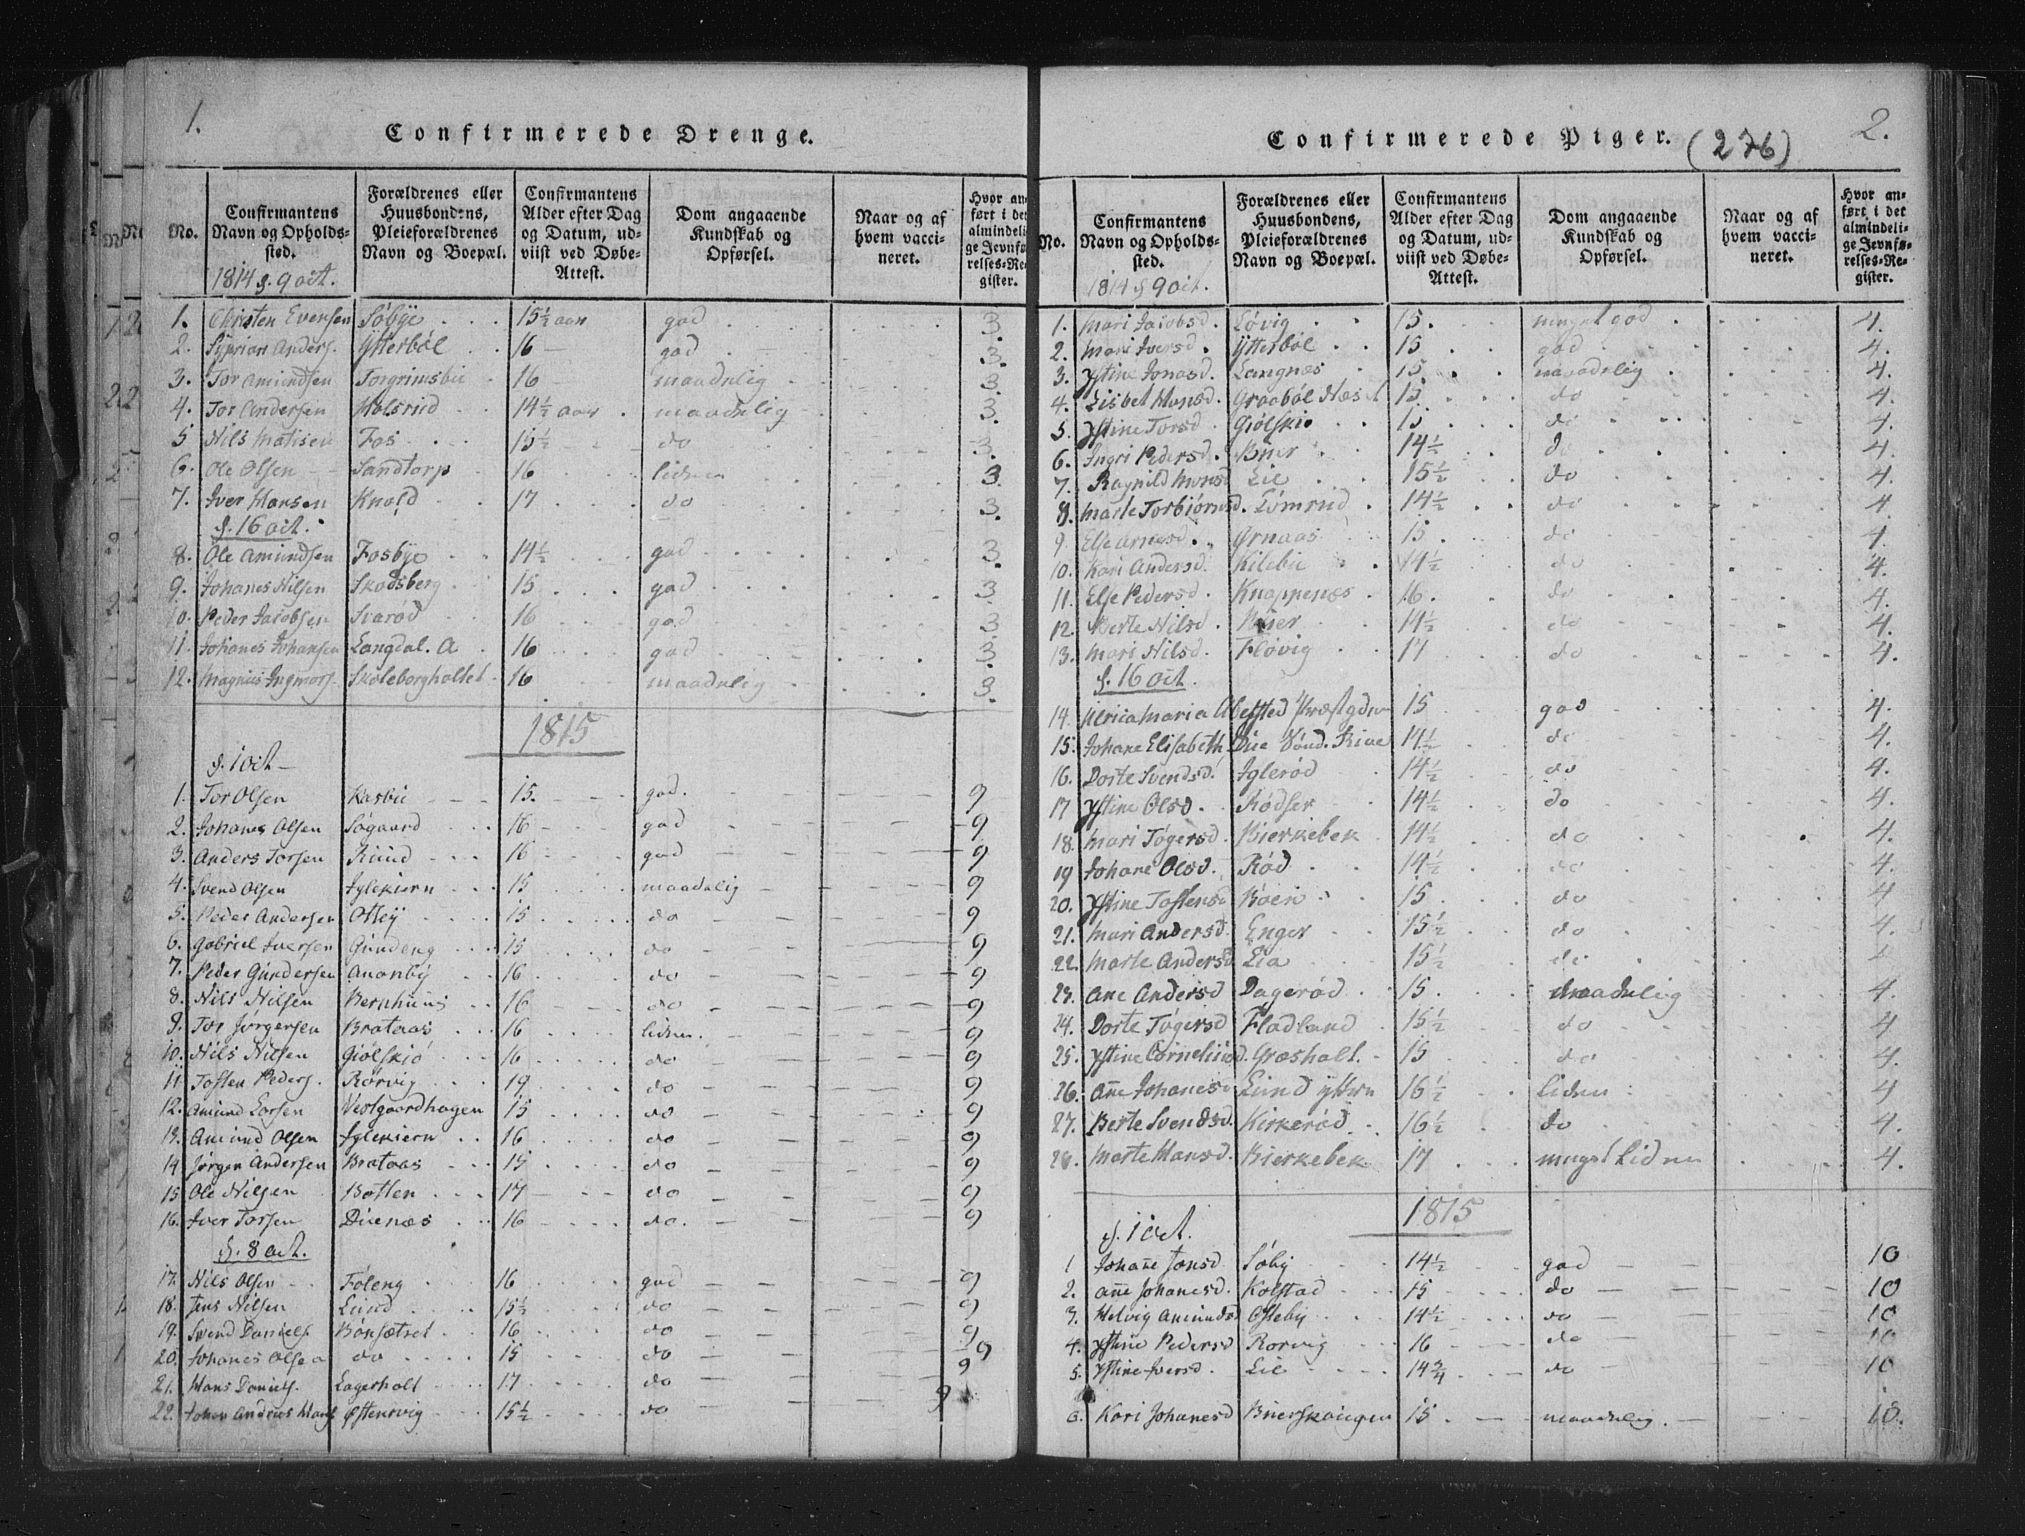 1.
Confirmerede Drenge.
No.
Confirmantens Navn og Opholdssted.
Forældrenes eller Huusbondens, Pleieforældrenes Navn og Boepæl.
Confirmantens Alder efter Dag og Datum, udviist ved Døbe-Attest.
Dom angaaende Kundskab og Opførsel.
Naar og af hvem vaccineret.
Hvor anført i det almindelige Jevnførelses-Register.
1814 d. 9 oct.
1. Christen Evensen Søbye 15½ aar god 3.
2. Syprian Anders. Ytterbøl 16 god 3.
3. Tor Amundsen Torgrimsbü 16 maadelig 3.
4. Tor Andersen Holsrud 14½ aar maadelig 3.
5 Nils Matisen Fos 15½ do 3.
6. Ole Olsen Sandtorp 16 liden 3.
7. Iver Hansen Knold 17 do 3.
d. 16 oct.
8. Ole Amundsen Fosbye 14½ god 3.
9. Johanes Nilsen Skodsberg 15 god 3.
10. Peder Jacobsen Svarød 16 god 3.
11. Johanes Johansen Langdal. A 16 god 3.
12. Magnus Ingvors. Skoleborgholtet 16 maadelig 3.
1815
d. 1 oct
1. Tor Olsen Kasbü 15. god. 9
2. Johanes Olsen Søgaard 16 god 9
3. Anders Torsen Rüüd 16 god 9
4. Svend Olsen Iglekiern 15 maadelig 9
5. Peder Andersen Ottey 15 do 9
6. Gabriel Iversen Gündeng 15 do 9
7. Peder Gündersen Ananby 16 do 9
8. Nils Nilsen Berghuus 16 do 9
9. Tor Jørgersen Brataas 16 liden. 9
10. Nils Nilsen Giølskiø 16 do 9
11 Tosten Peders. Rørvig 19 do 9
12. Amund Larsen Vestgaardhagen 15 do 9
13. Amund Olsen Iglekiern 16 do 9
14 Jørgen Andersen Brataas 15 do 9
15 Ole Nilsen Botten 17 do 9
16. Iver Torsen Düenæs 16 do. 9
d. 8 oct.
17. Nils Olsen Føleng 16 god 9
18. Jens Nilsen Lund 15½ do 9
19. Svend Daniels. Bönsætret 16 do 9
20. Johanes Olsen do 15 do 9
21. Hans Daniels. Lagerholt 17 do 9
22. Johan Andreas Hans. Østensvig 15½ do 9
2.
Confirmerede Piger. (276)
No.
Confirmantens Navn og Opholdssted.
Forældrenes eller Huusbondens, Pleieforældrenes Navn og Boepæl.
Confirmantens Alder efter Dag og Datum, udviist ved Døbe-Attest.
Dom angaaende Kundskab og Opførsel.
Naar og af hvem vaccineret.
Hvor anført i det almindelige Jevnførelses-Register.
1814 d 9 oct.
1. Mari Jacobsd. Løvig 15. meget god 4.
2. Mari Iversd. Ytterbøl 15 god 4.
3. Kstine Jonasd. Langnæs 15 maadelig 4.
4. Lisbet Hansd. Graabøl Næst 15. do 4.
5. Kstine Torsd. Giølskiø 15 do 4.
6. Ingri Pedersd. Büer 14½ do 4.
7. Ragnild Hansd Lie 15½ do 4.
8. Marte Torbiørnsd. Lømrud 14½ do 4.
9. Else Arnesd. Ørnaas 15 do 4.
10. Kari Andersd. Kilebü 14½ do 4.
11. Else Pedersd. Knappenæs 16. do 4.
12. Berte Nilsd. Büer 14½ do 4.
13. Mari Nilsd. Fløvig 17 do 4.
d. 16 oct.
14. Ulrica Maria Abelsted Præstgden 15 god 4.
15. Johane Elisabeth Düe Sönd. Krine 14½ do 4.
16. Dorte Svendsd. Iglerød 14½ do 4.
17 Kstine Olsd. Rødser 14½ do 4.
18. Mari Tøgersd. Bierkebek 14½ do 4.
19 Johane Olsd. Rød 14½ do 4.
20. Kstine Tostensd Böen 15 do 4
21. Mari Andersd. Enger 15½ do 4.
22. Marte Andersd Lia 15½ do 4
23. Ane Andersd Dagerød 15 maadelig 4.
24. Dorte Tøgersd Fladland 15½ do 4
25. Kstine Corneliusd. Græsholt 15 do 4.
26. Añe Johanesd Lund yttern 16½ liden 4
27. Berte Svendsd. Kirkerød 16½ do 4.
28. Marte Hansd. Bierkebek 17 meget liden 4.
1815
d. 1 oct.
1 Johañe Jonsd Søby 14½ god 10
2. Añe Johanesd. Kolstad 15 do 10
3. Helvig Amundsd Østeby 14½ do 10
4. Kstine Pedersd Rorvig 16 do 10
5. Kstine Iversd. Lie 14¾ do 10
6. Kari Johanesd Büerskougen 15 maadelig 10.